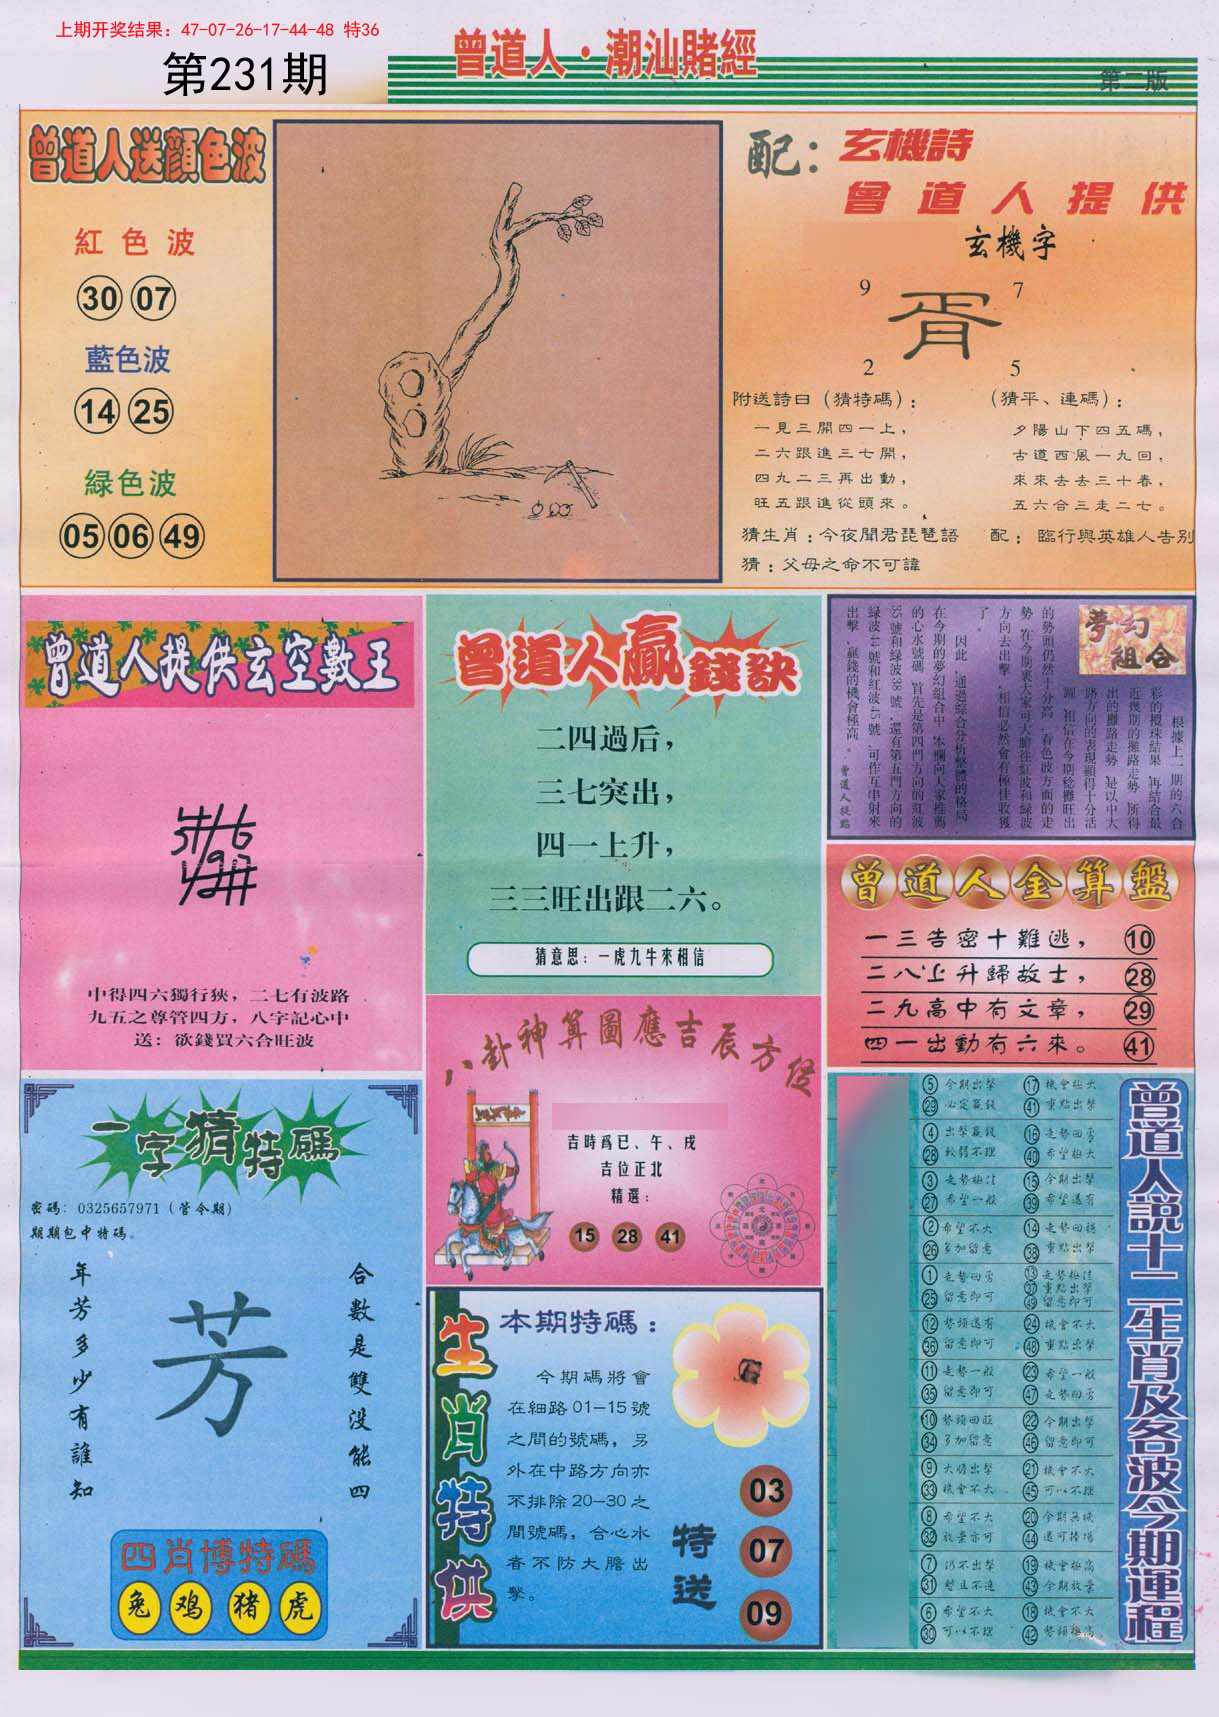 上期开奖结果：47-07-26-17-44-48 特36
第231期
曾道人·潮汕賭經
第二版
曾道人送顔色波
紅色波
30 07
藍色波
14 25
緑色波
05 06 49
配：玄機詩
曾道人提供
玄機字
9 7
胥
2 5
附送詩曰（猜特碼）：
一見三開四一上，
二六跟進三七開，
四九二三再出動，
旺五跟進從頭來。
（猜平、連碼）：
夕陽山下四五碼，
古道西風一九回，
來來去去三十春，
五六合三走二七。
猜生肖：今夜聞君琵琶語
配：臨行與英雄人告别
猜：父母之命不可諱
曾道人提供玄空數王
中得四六獨行狹，二七有波路
九五之尊管四方，八字記心中
送：欲錢買六合旺波
曾道人贏錢訣
二四過后，
三七突出，
四一上升，
三三旺出跟二六。
猜意思：一虎九牛來相信
夢幻
組合
根據上一期的六合
彩的攪珠結果，再結合最
近幾期的攤路走勢，所得
出的攤路走勢，是以中大
路方向的表現顯得十分活
躍，相信在今期稔攤旺出
的勢頭仍然十分高。看色波方面的走
勢，在今期裏大家可大膽往紅波和緑波
方向去出擊，相信必然會有極佳收獲
了。
因此，通過綜合分析整體的格局，
在今期的夢幻組合中，本欄向大家推薦
的心水號碼，首先是第四門方向的紅波
35號和緑波38號，還有第五門方向的
緑波44號和紅波45號，可作互串射來
出擊，贏錢的機會極高。
曾道人提點
曾道人金算盤
一三告密十難逃， 10
二八上升歸故士， 28
二九高中有文章， 29
四一出動有六來。 41
八卦神算圖應吉辰方位
吉時爲巳、午、戌
吉位正北
精選：
15 28 41
一字猜特碼
密碼：0325657971（管今期）
期期包中特碼。
年芳多少有誰知
芳
合數是雙没能四
四肖博特碼
兔 鸡 猪 虎
生肖特供
本期特碼：
今期碼將會
在細路01-15號
之間的號碼，另
外在中路方向亦
不排除20-30之
間號碼，合心水
者不防大膽出
擊。
特送
03
07
09
⑤ 今期出擊 ⑰ 機會極大
㉙ 必定贏錢 ㊶ 重點出擊
④ 出擊贏錢 ⑯ 走勢回勇
㉘ 較弱不理 ㊵ 希望極大
③ 走勢極佳 ⑮ 今期出擊
㉗ 希望一般 ㊴ 希望還有
② 希望不大 ⑭ 走勢回穩
㉖ 多加留意 ㊳ 重點出擊
① 走勢回勇 ⑬ 走勢極佳
㊲ 重點出擊
㉕ 留意即可 ㊾ 留意即可
⑫ 勢頭還有 ㉔ 機會不大
㊱ 留意即可 ㊽ 重點出擊
⑪ 走勢一般 ㉓ 希望一般
㉟ 留意即可 ㊼ 走勢回勇
⑩ 勢頭回旺 ㉒ 今期出擊
㉞ 多加留意 ㊻ 留意即可
⑨ 大膽出擊 ㉑ 機會不大
㉝ 機會不大 ㊺ 可以不理
⑧ 希望不大 ⑳ 今期無機
㉜ 放棄亦可 ㊹ 還可捧場
⑦ 仍不出擊 ⑲ 機會極高
㉛ 暫且不追 ㊸ 今期放棄
⑥ 希望不大 ⑱ 機會不大
㉚ 可以不理 ㊷ 勢頭極高
曾道人説十二生肖及各波今期運程